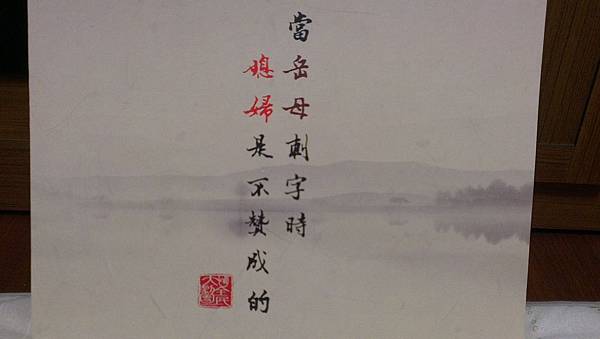 當岳母刺字時
媳婦是不贊成的